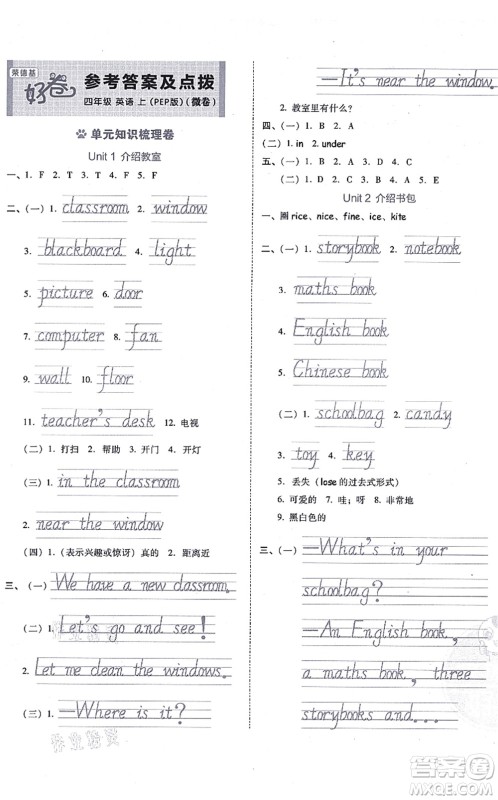 荣德基
好卷
参考答案及点拨
四年级 英语 上 (PEP版)(微卷)
单元知识梳理卷
Unit 1 介绍教室
一、1. F 2. T 3. T 4. F 5. F
二、(一) 1. classroom 2. window
3. blackboard 4. light
5. picture 6. door
7. computer 8. fan
9. wall 10. floor
11. teacher's desk 12. 电视
(二) 1. 打扫 2. 帮助 3. 开门 4. 开灯
(三) 1. in the classroom
2. near the window
(四) 1. (表示兴趣或惊讶) 真的 2. 距离近
三、(一) We have a new classroom.
(二) 1. Let's go and see!
2. Let me clean the windows.
(三) 1. —Where is it?
—It's near the window.
2. 教室里有什么?
四、(一) 1. B 2. A
(二) 1. in 2. under
五、(一) 1. B 2. A 3. B 4. A
(二) 1. D 2. B 3. C 4. A 5. E
Unit 2 介绍书包
一、圈 rice, nice, fine, ice, kite
二、(一) 1. storybook 2. notebook
3. maths book
4. English book
5. Chinese book
(二) 1. schoolbag 2. candy
3. toy 4. key
5. 丢失 (lose 的过去式形式)
6. 可爱的 7. 哇;呀 8. 非常地
9. 黑白色的
三、(一) —What's in your
schoolbag?
—An English book,
a maths book, three
storybooks and...
答案圈
MXQE.COM